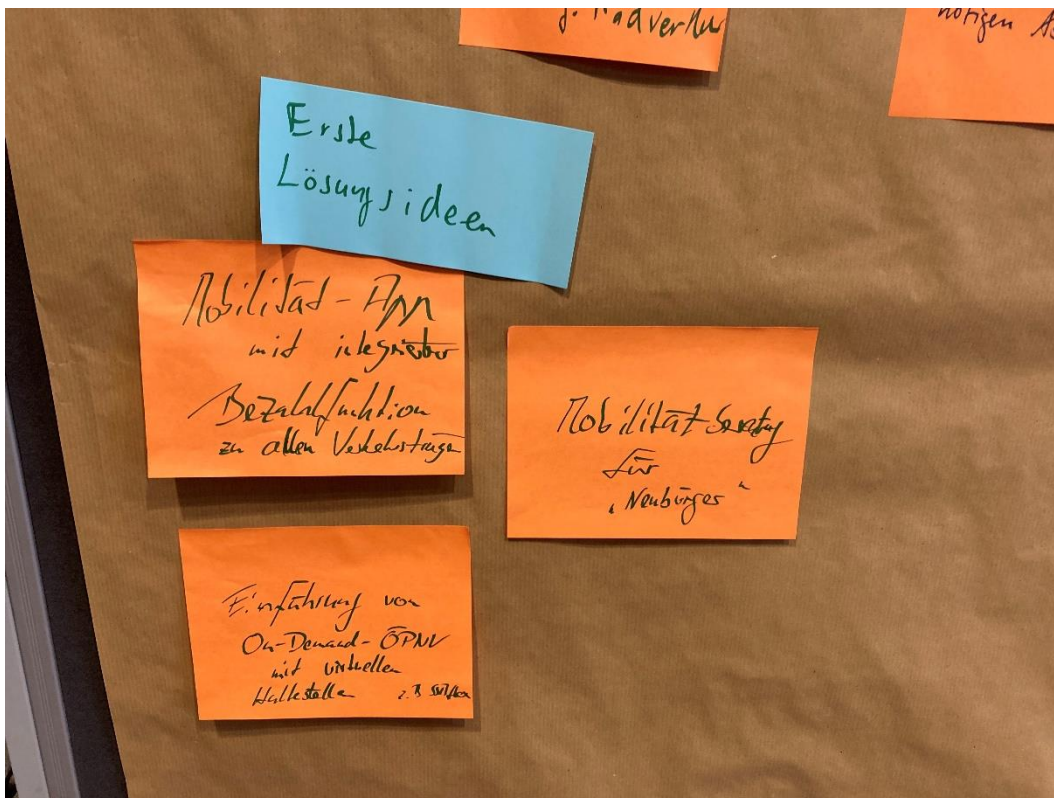 g. Radverkehr
nötigen
Erste
Lösungsideen
Mobilität-App
mit integrierter
Bezahlfunktion
zu allen Verkehrsträgern
Mobilitätsberatung
für
"Neubürger"
Einführung von
On-Demand-ÖPNV
mit virtuellen
Haltestellen z.B.